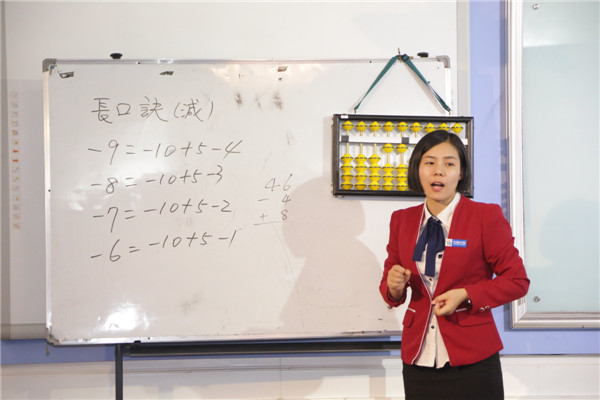 長口訣(減)
-9=-10+5-4
-8=-10+5-3
-7=-10+5-2
-6=-10+5-1
46
- 4
+ 8